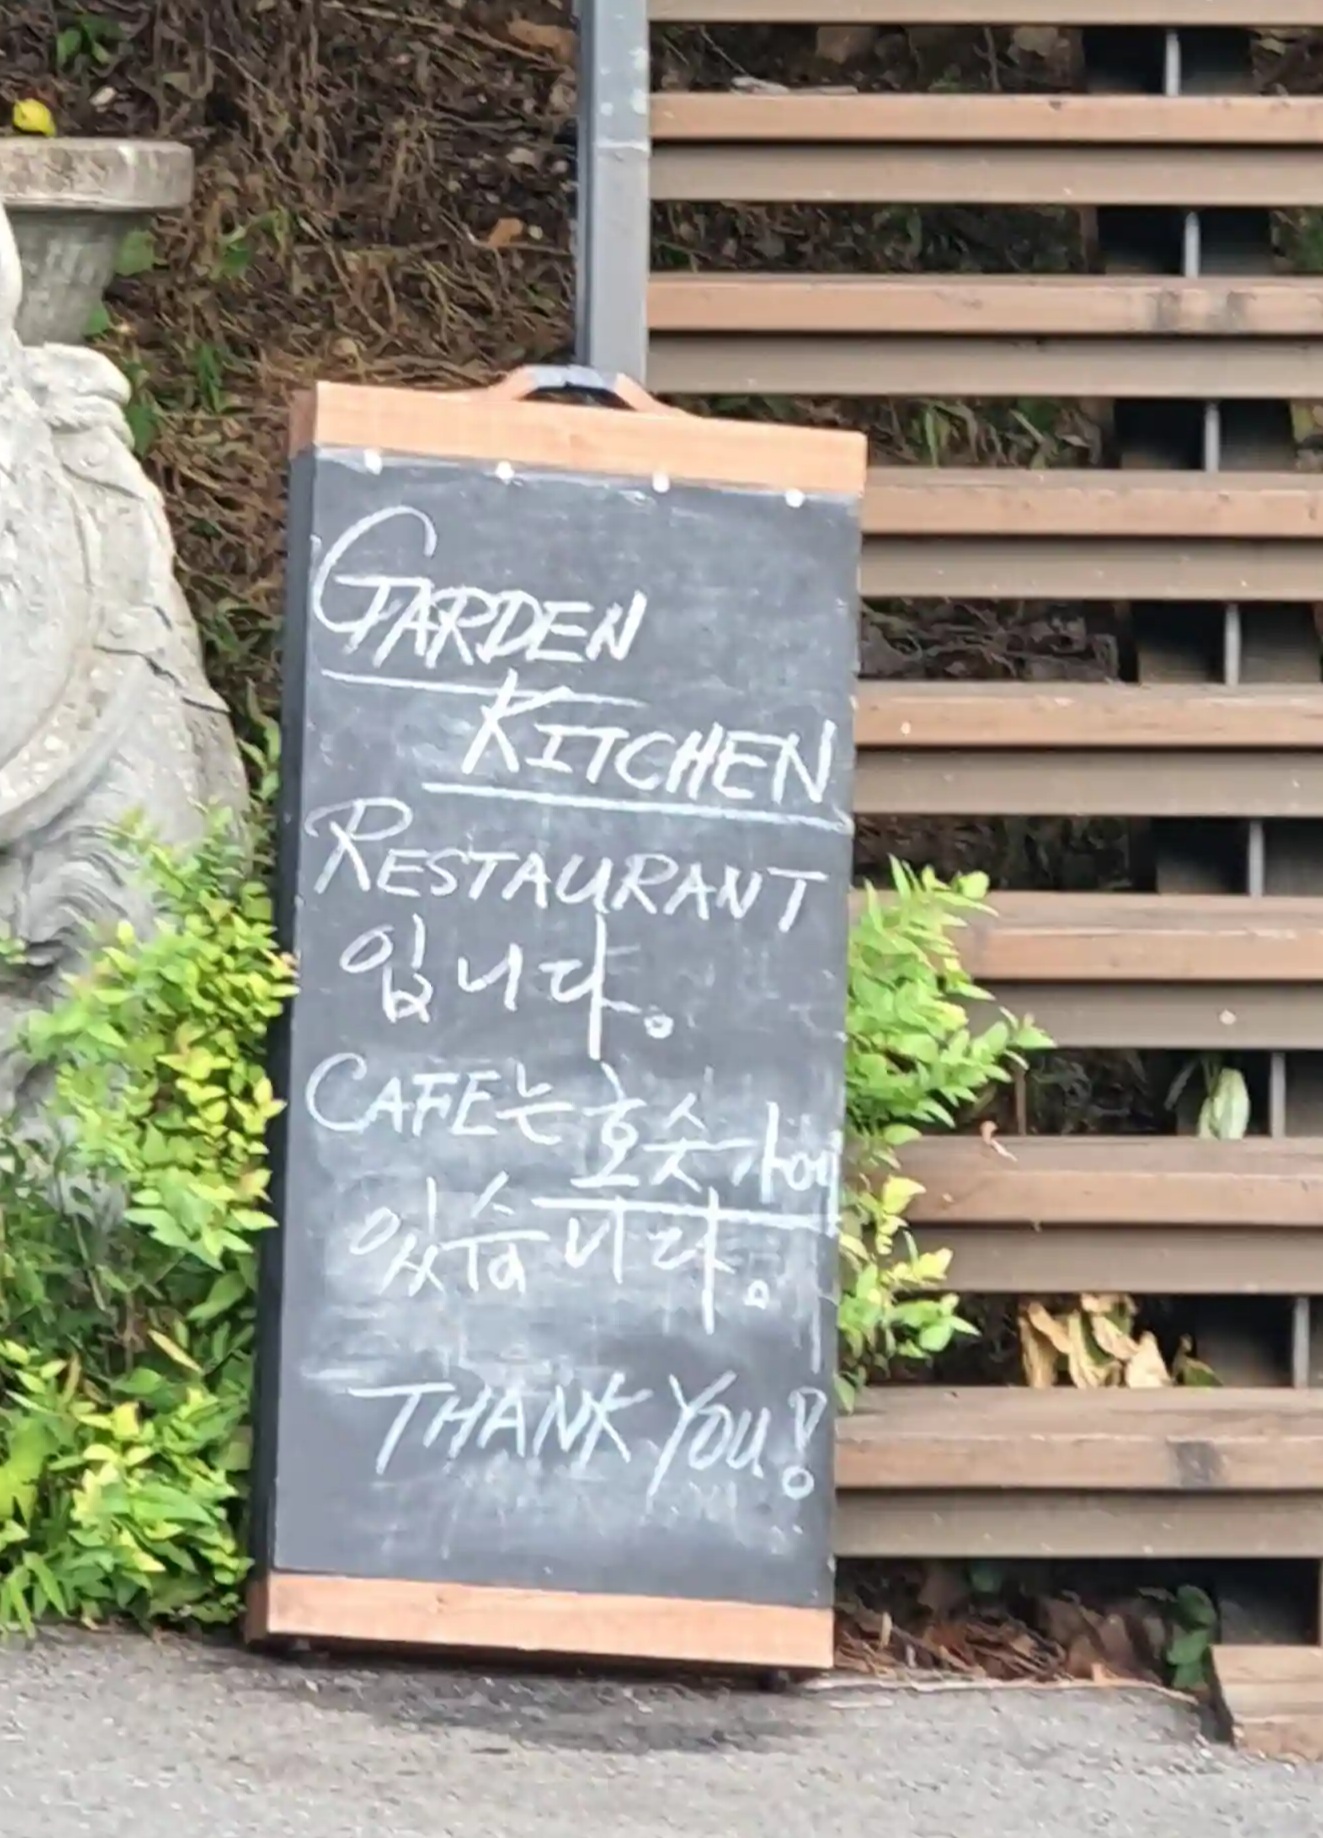 GARDEN
KITCHEN
RESTAURANT
입니다.
CAFE는 호숫가에
있습니다.
THANK YOU!